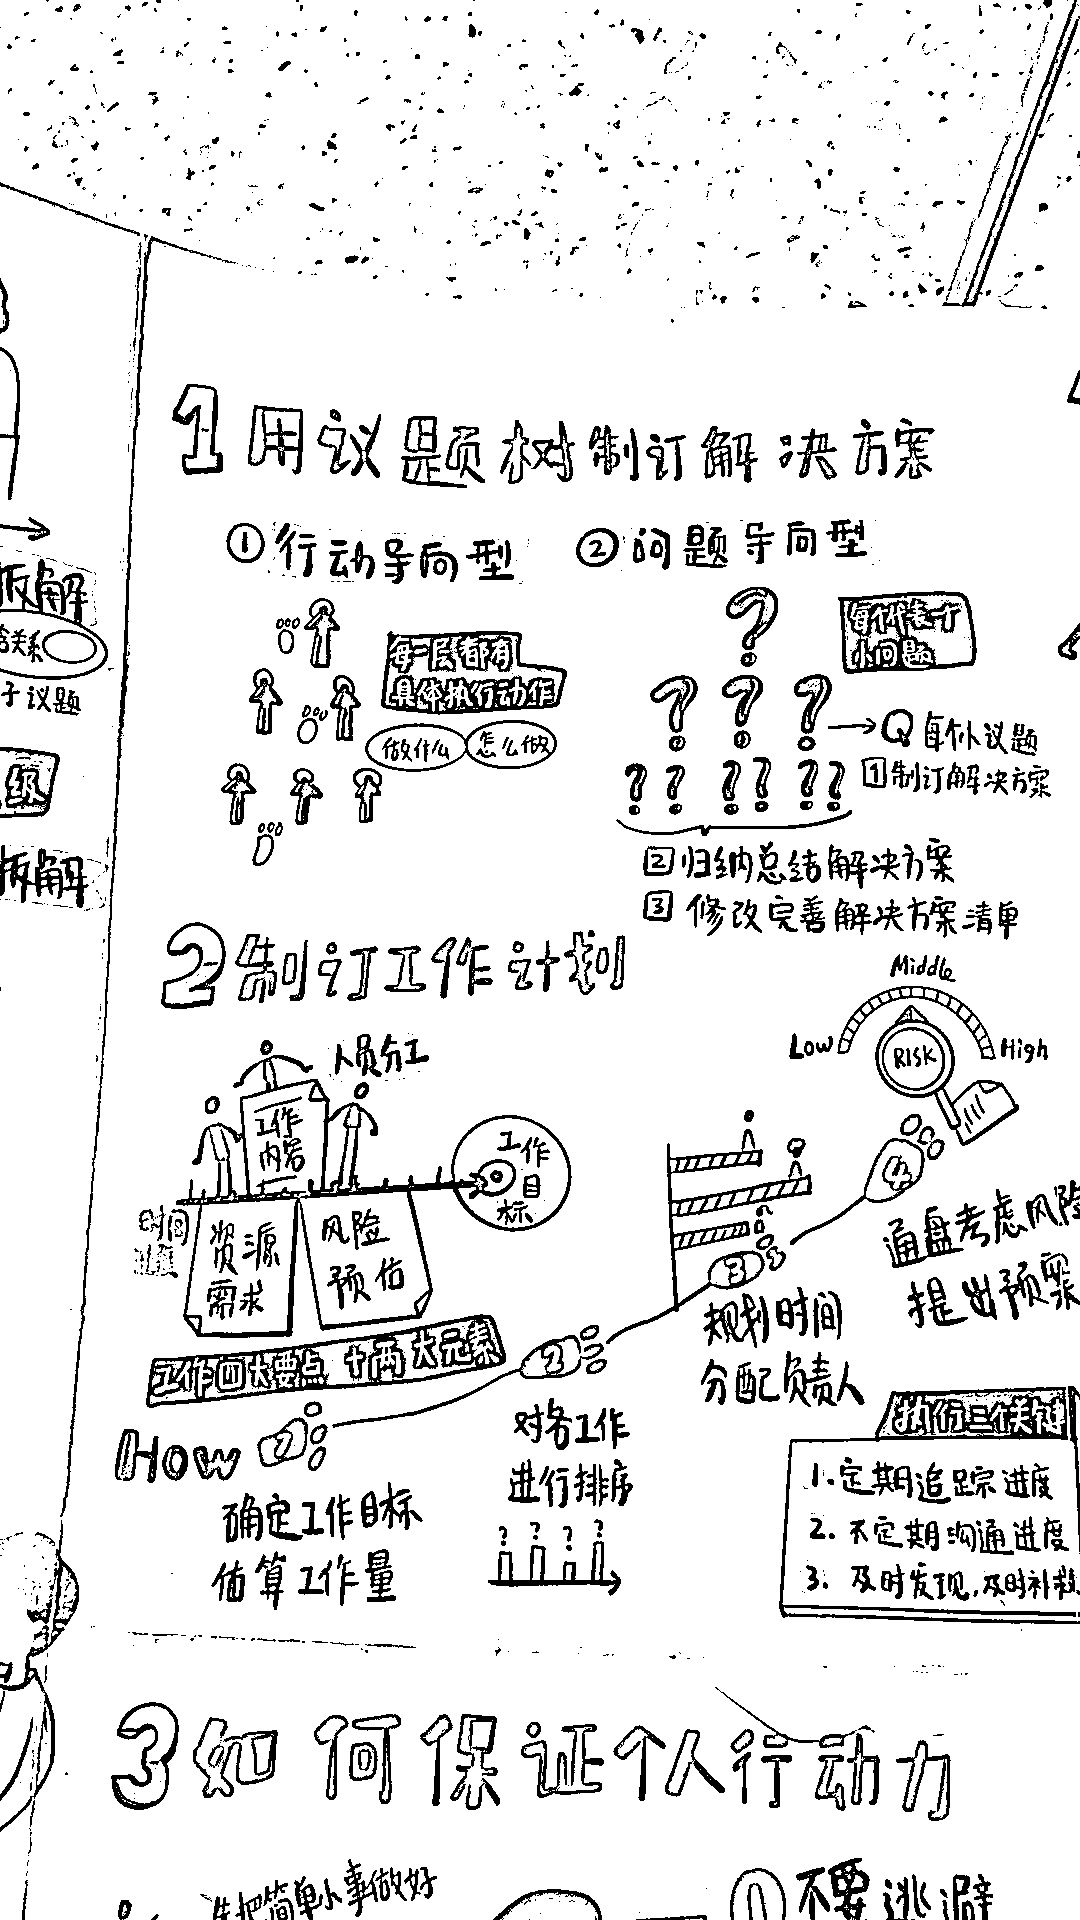 1 用议题树制订解决方案
① 行动导向型
② 问题导向型
每一层都有
具体执行动作
做什么 怎么做
每个代表一个
小问题
→ Q 每个小议题
1 制订解决方案
2 归纳总结解决方案
3 修改完善解决方案清单
拆解
关系
子议题
级
拆解
2 制订工作计划
人员分工
工作
内容
工作
目
标
时间
资源
需求
风险
预估
工作四大要点 十两大元素
Low Middle High
RISK
How
1
确定工作目标
估算工作量
2
对各工作
进行排序
? ? ? ?
3
规划时间
分配负责人
4
通盘考虑风险
提出预案
执行三个关键
1. 定期追踪进度
2. 不定期沟通进度
3. 及时发现,及时补救
3 如何保证个人行动力
先把简单小事做好
不要逃避